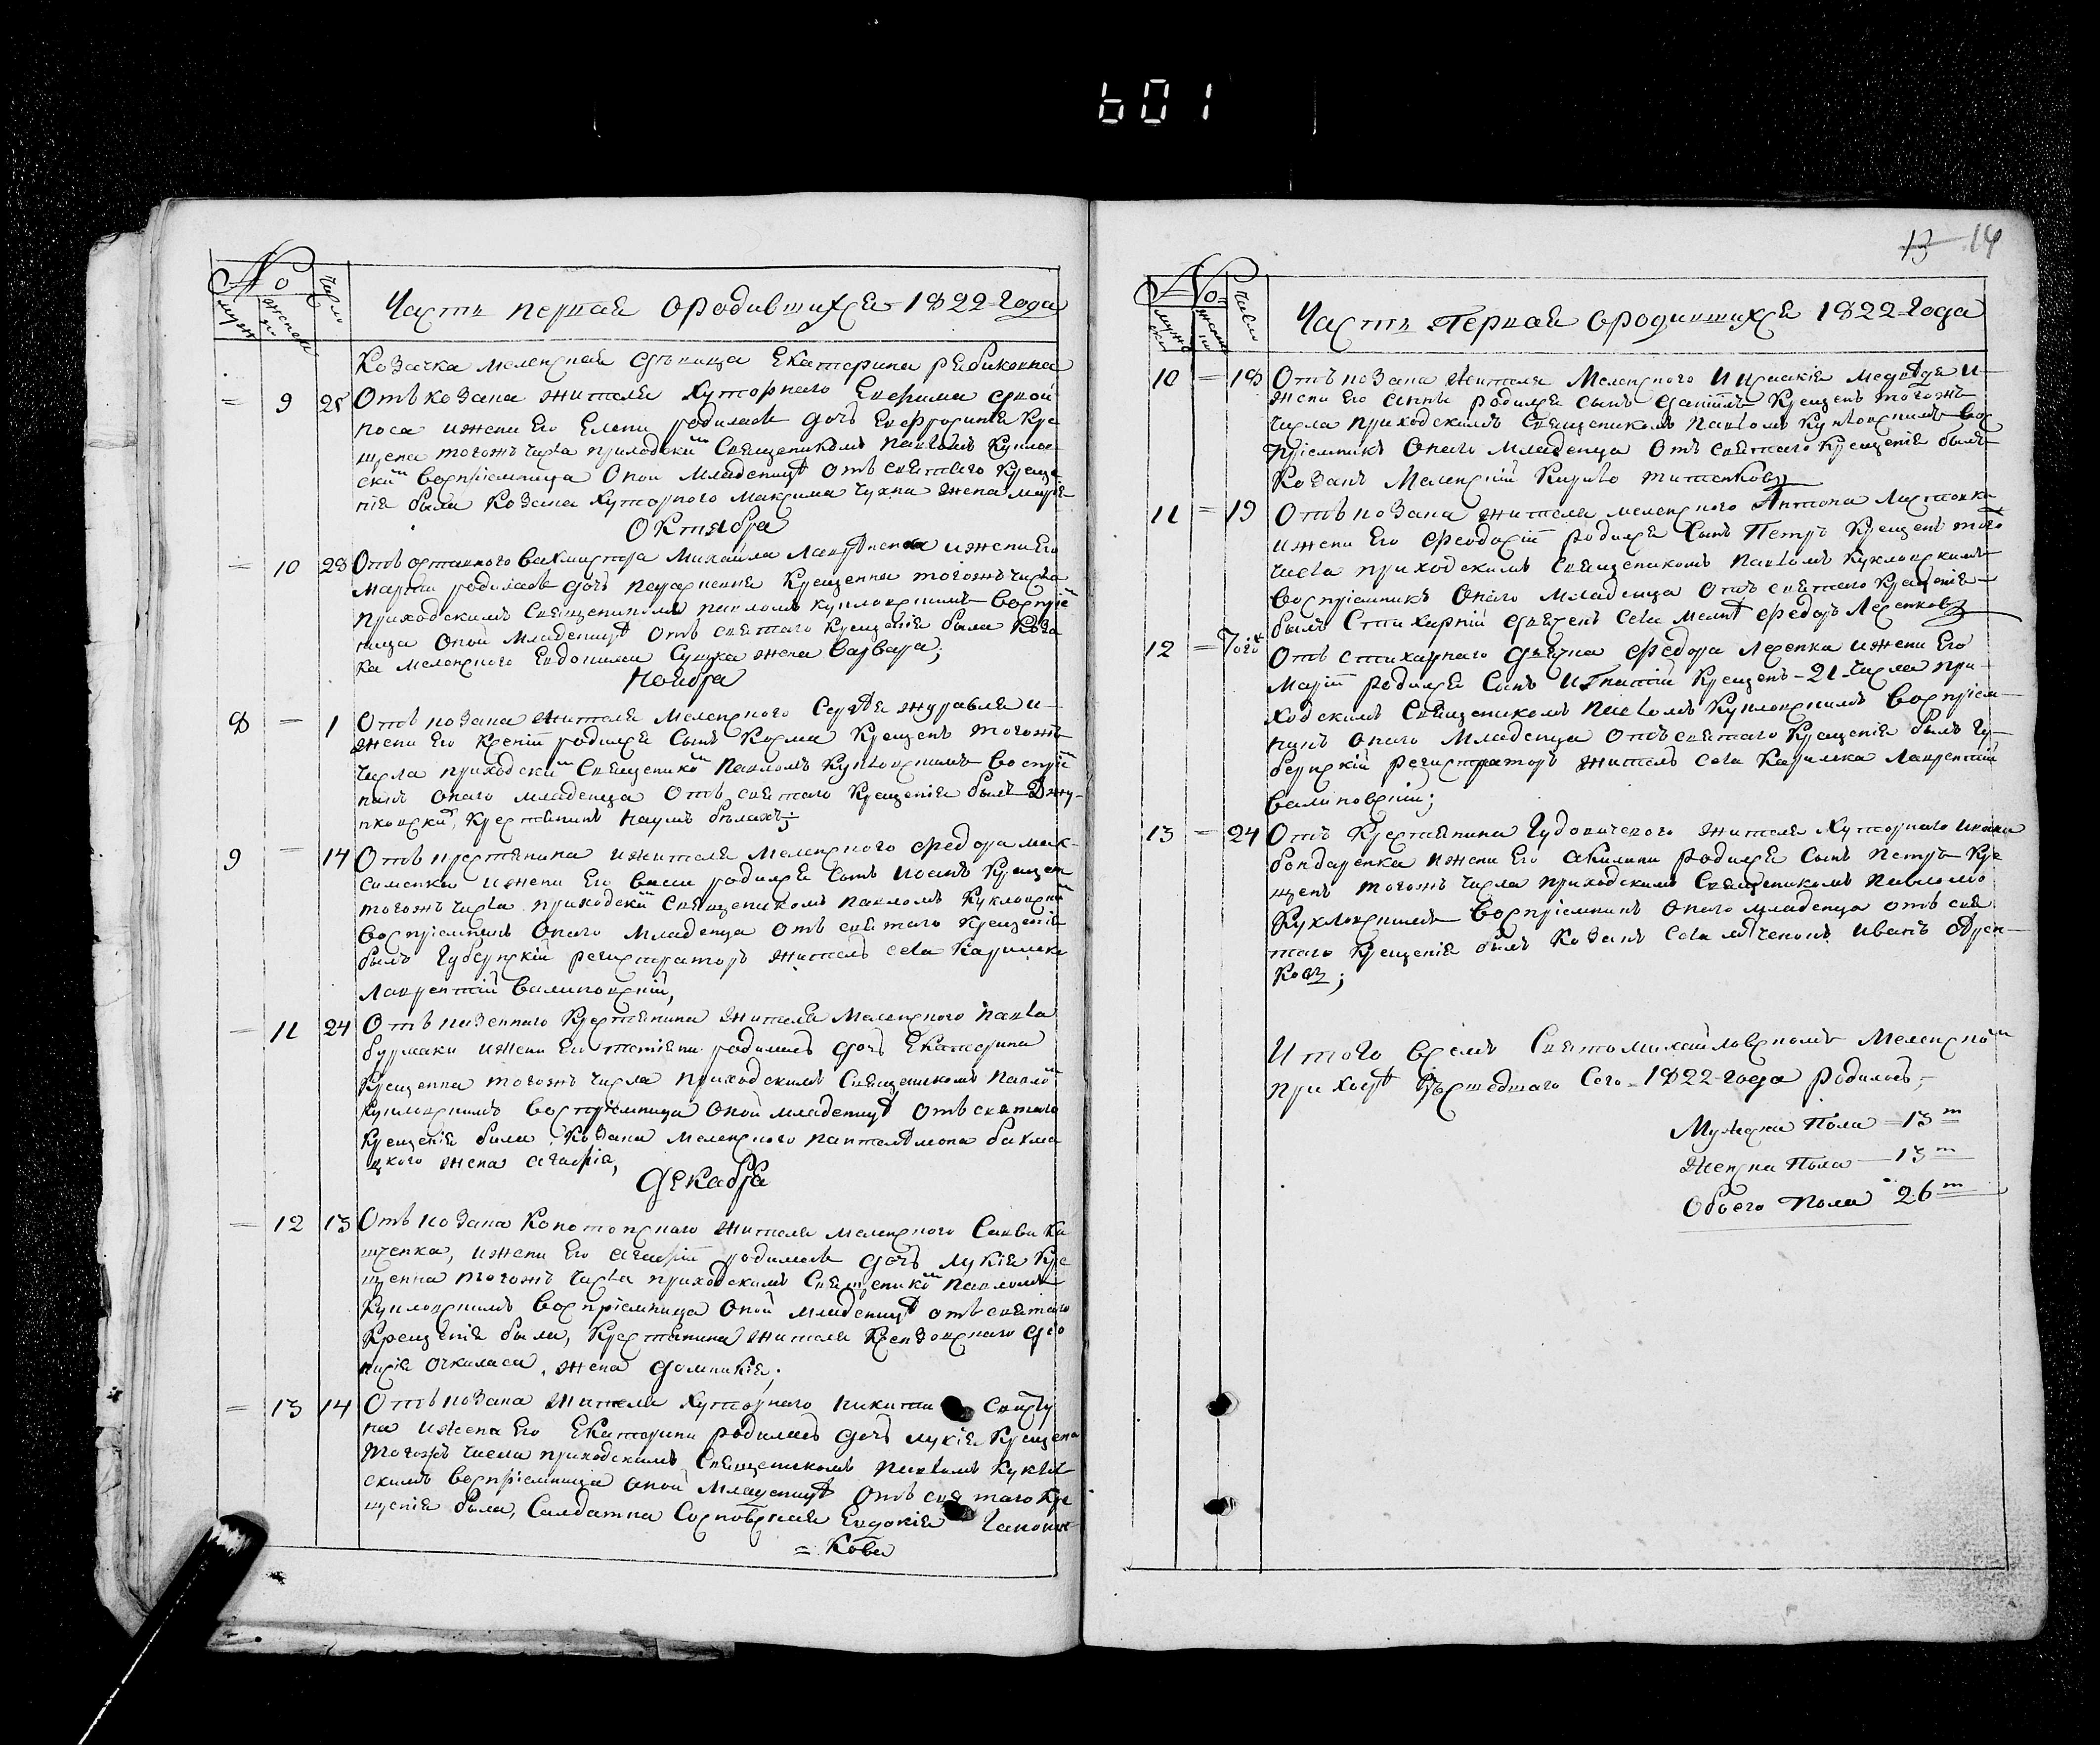 601
№ Число
мужск женски
Часть первая ородившихся 1822 Года
Козачка меленская девица Екатерина рябиковна
= 9 28 Отъ козака жителя Хуторнаго Ефима
носа ижени Его Елени родилась дочь Ефросиния Кре
щена тогожъ числа приходскимъ Священикомъ Павломъ Куклов
скимъ Воспріемница Оной младеницѣ Отъ святаго Креще
нія была Козака Хуторного Максима Чухна жена Марія
Октября
— 10 28 Отъ отставного Вахмистра Михайла ижени Его
Маріи родилась дочь Параскевия Крещенна тогожъ числа
приходскимъ Священикомъ павломъ кукловскимъ Воспріем
ница Оной младеницѣ Отъ святаго Крещенія была Коза
ка меленского Евдокима Сушка жена Варвара;
Ноября
8 — 1 Отъ козака жителя Меленского Сергѣя журавля и
жени Его Ксеніи родился Сынъ Козма Крещенъ тогожъ
числа приходским Священиком Павломъ Кукловскимъ Воспріем
никъ оного младенца Отъ святаго Крещенія былъ
Крестянинъ Наумъ
9 — 14 Отъ крестянина ижителя Меленского Федора мак
сименка ижени Его родился Сынъ Иоанъ Крещен
тогожъ числа приходским Священикомъ Павломъ Кукловским
Воспріемникъ Оного Младенца Отъ святаго Крещенія
былъ Губернскій регистраторъ житель села Карилска
Лаврентій Валиновскій,
— 11 24 Отъ казенного Крестянина жителя Меленского Павла
бурмаки ижени Его родилась дочь Екатерина
Крещенна тогожъ числа приходскимъ Священикомъ Павлом
Кукловскимъ Воспріемница Оной младеницѣ Отъ святаго
Крещенія была Козака Меленского Пантелѣмона бахма
цкого жена Агафія,
Декабря
— 12 13 Отъ козака Конотопского жителя меленского Саввы Ка
щенка, ижени Его Агафіи родилась дочь Лукія Кре
щенна тогожъ числа приходскимъ Священиком Павломъ
Кукловскимъ Воспріемница Оной младеницѣ отъ святаго
Крещенія была, Крестянина жителя
жена Домникія;
= 13 14 Отъ козака жителя Хуторнаго никити Свисту
на ижени Его Екатерини родилась дочь лукія Крещена
тогожъ числа приходскимъ Священикомъ Павломъ Куклов
скимъ Воспріемница оной Младеницѣ Отъ святаго Кре
щенія была, Салдатка Сосновская Евдокія Гапонен
= Кова
13 14
№ Число
мужески женски
Часть Первая ородившихся 1822 Года
10 = 18 Отъ козака жителя Меленского Ираклія медвѣдя и
жени Его Анны родился сынъ Даніилъ Крещенъ тогожъ
числа приходскимъ Священикомъ Павломъ Кукловскимъ Вос
пріемникъ Оного младенца Отъ святаго Крещенія былъ
Козакъ Меленскій Кирило титенковъ
11 = 19 Отъ козака жителя меленского Антона Ластовки
ижени Его Феодосіи родился Сынъ Петръ Крещенъ того
числа приходскимъ Священикомъ Павломъ Кукловскимъ
Воспріемникъ Оного младенца Отъ святаго Крещенія
былъ Стихарній дьячекъ Села мелни Федоръ Лесенковъ
12 = Того Отъ стихарнаго дьячка Федора Лесенка ижени Его
Маріи родился Сынъ Игнатій Крещенъ 21 числа при
ходскимъ Священикомъ Павломъ Кукловскимъ Воспріем
никъ оного младенца Отъ святаго Крещенія былъ Гу
бернскій регистраторъ житель села Карилска Лаврентій
Валиновскій;
13 = 24 Отъ Крестянина Гудовичевого жителя Хуторнаго
бондаренка ижени Его Акилини родился Сынъ Петръ Кре
щенъ тогожъ числа приходскимъ Священикомъ Павломъ
Кукловскимъ Воспріемникъ Оного младенца отъ свя
таго Крещенія былъ Козакъ Села Иванъ
ковъ;
Итого всемъ Святомихайловскомъ Меленском
приходѣ прошедшаго Сего 1822 года родилось,
Мужска Пола 13 т
Женска Пола 13 т
Обоего Пола 26 т